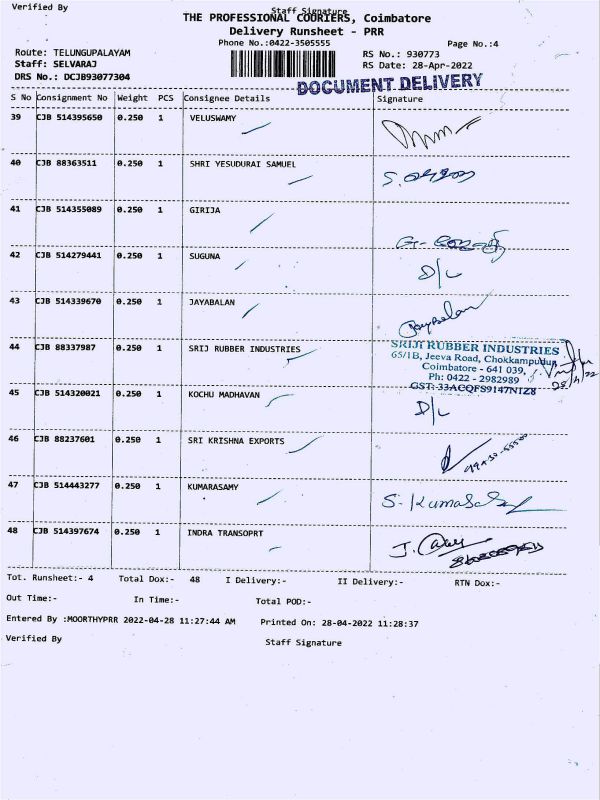 Verified By
Staff Signature
THE PROFESSIONAL COURIERS, Coimbatore
Delivery Runsheet - PRR
Phone No.:0422-3505555
Page No.:4
Route: TELUNGUPALAYAM
RS No.: 930773
Staff: SELVARAJ
RS Date: 28-Apr-2022
DRS No.: DCJB93077304
DOCUMENT DELIVERY
S No Consignment No Weight PCS Consignee Details Signature
39 CJB 514395650 0.250 1 VELUSWAMY
40 CJB 88363511 0.250 1 SHRI YESUDURAI SAMUEL
41 CJB 514355089 0.250 1 GIRIJA
42 CJB 514279441 0.250 1 SUGUNA D/L
43 CJB 514339670 0.250 1 JAYABALAN Jayabalan
44 CJB 88337987 0.250 1 SRIJ RUBBER INDUSTRIES
SRIJI RUBBER INDUSTRIES
65/1B, Jeeva Road, Chokkampudur,
Coimbatore - 641 039.
Ph: 0422 - 2982989
GST: 33ACQFS9147N1Z8
28/4/22
45 CJB 514320021 0.250 1 KOCHU MADHAVAN D/L
46 CJB 88237601 0.250 1 SRI KRISHNA EXPORTS
47 CJB 514443277 0.250 1 KUMARASAMY
48 CJB 514397674 0.250 1 INDRA TRANSOPRT
Tot. Runsheet:- 4 Total Dox:- 48 I Delivery:- II Delivery:- RTN Dox:-
Out Time:- In Time:- Total POD:-
Entered By :MOORTHYPRR 2022-04-28 11:27:44 AM Printed On: 28-04-2022 11:28:37
Verified By Staff Signature